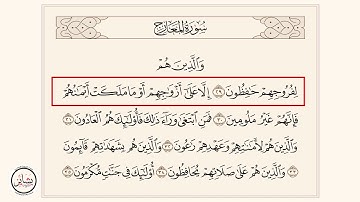 سُورَةُ المَعَارِجِ
وَالَّذِينَ هُمْ
لِفُرُوجِهِمْ حَافِظُونَ ٢٩ إِلَّا عَلَىٰ أَزْوَاجِهِمْ أَوْ مَا مَلَكَتْ أَيْمَانُهُمْ
فَإِنَّهُمْ غَيْرُ مَلُومِينَ ٣٠ فَمَنِ ابْتَغَىٰ وَرَاءَ ذَٰلِكَ فَأُولَٰئِكَ هُمُ الْعَادُونَ ٣١
وَالَّذِينَ هُمْ لِأَمَانَاتِهِمْ وَعَهْدِهِمْ رَاعُونَ ٣٢ وَالَّذِينَ هُمْ بِشَهَادَاتِهِمْ قَائِمُونَ
٣٣ وَالَّذِينَ هُمْ عَلَىٰ صَلَاتِهِمْ يُحَافِظُونَ ٣٤ أُولَٰئِكَ فِي جَنَّاتٍ مُكْرَمُونَ ٣٥